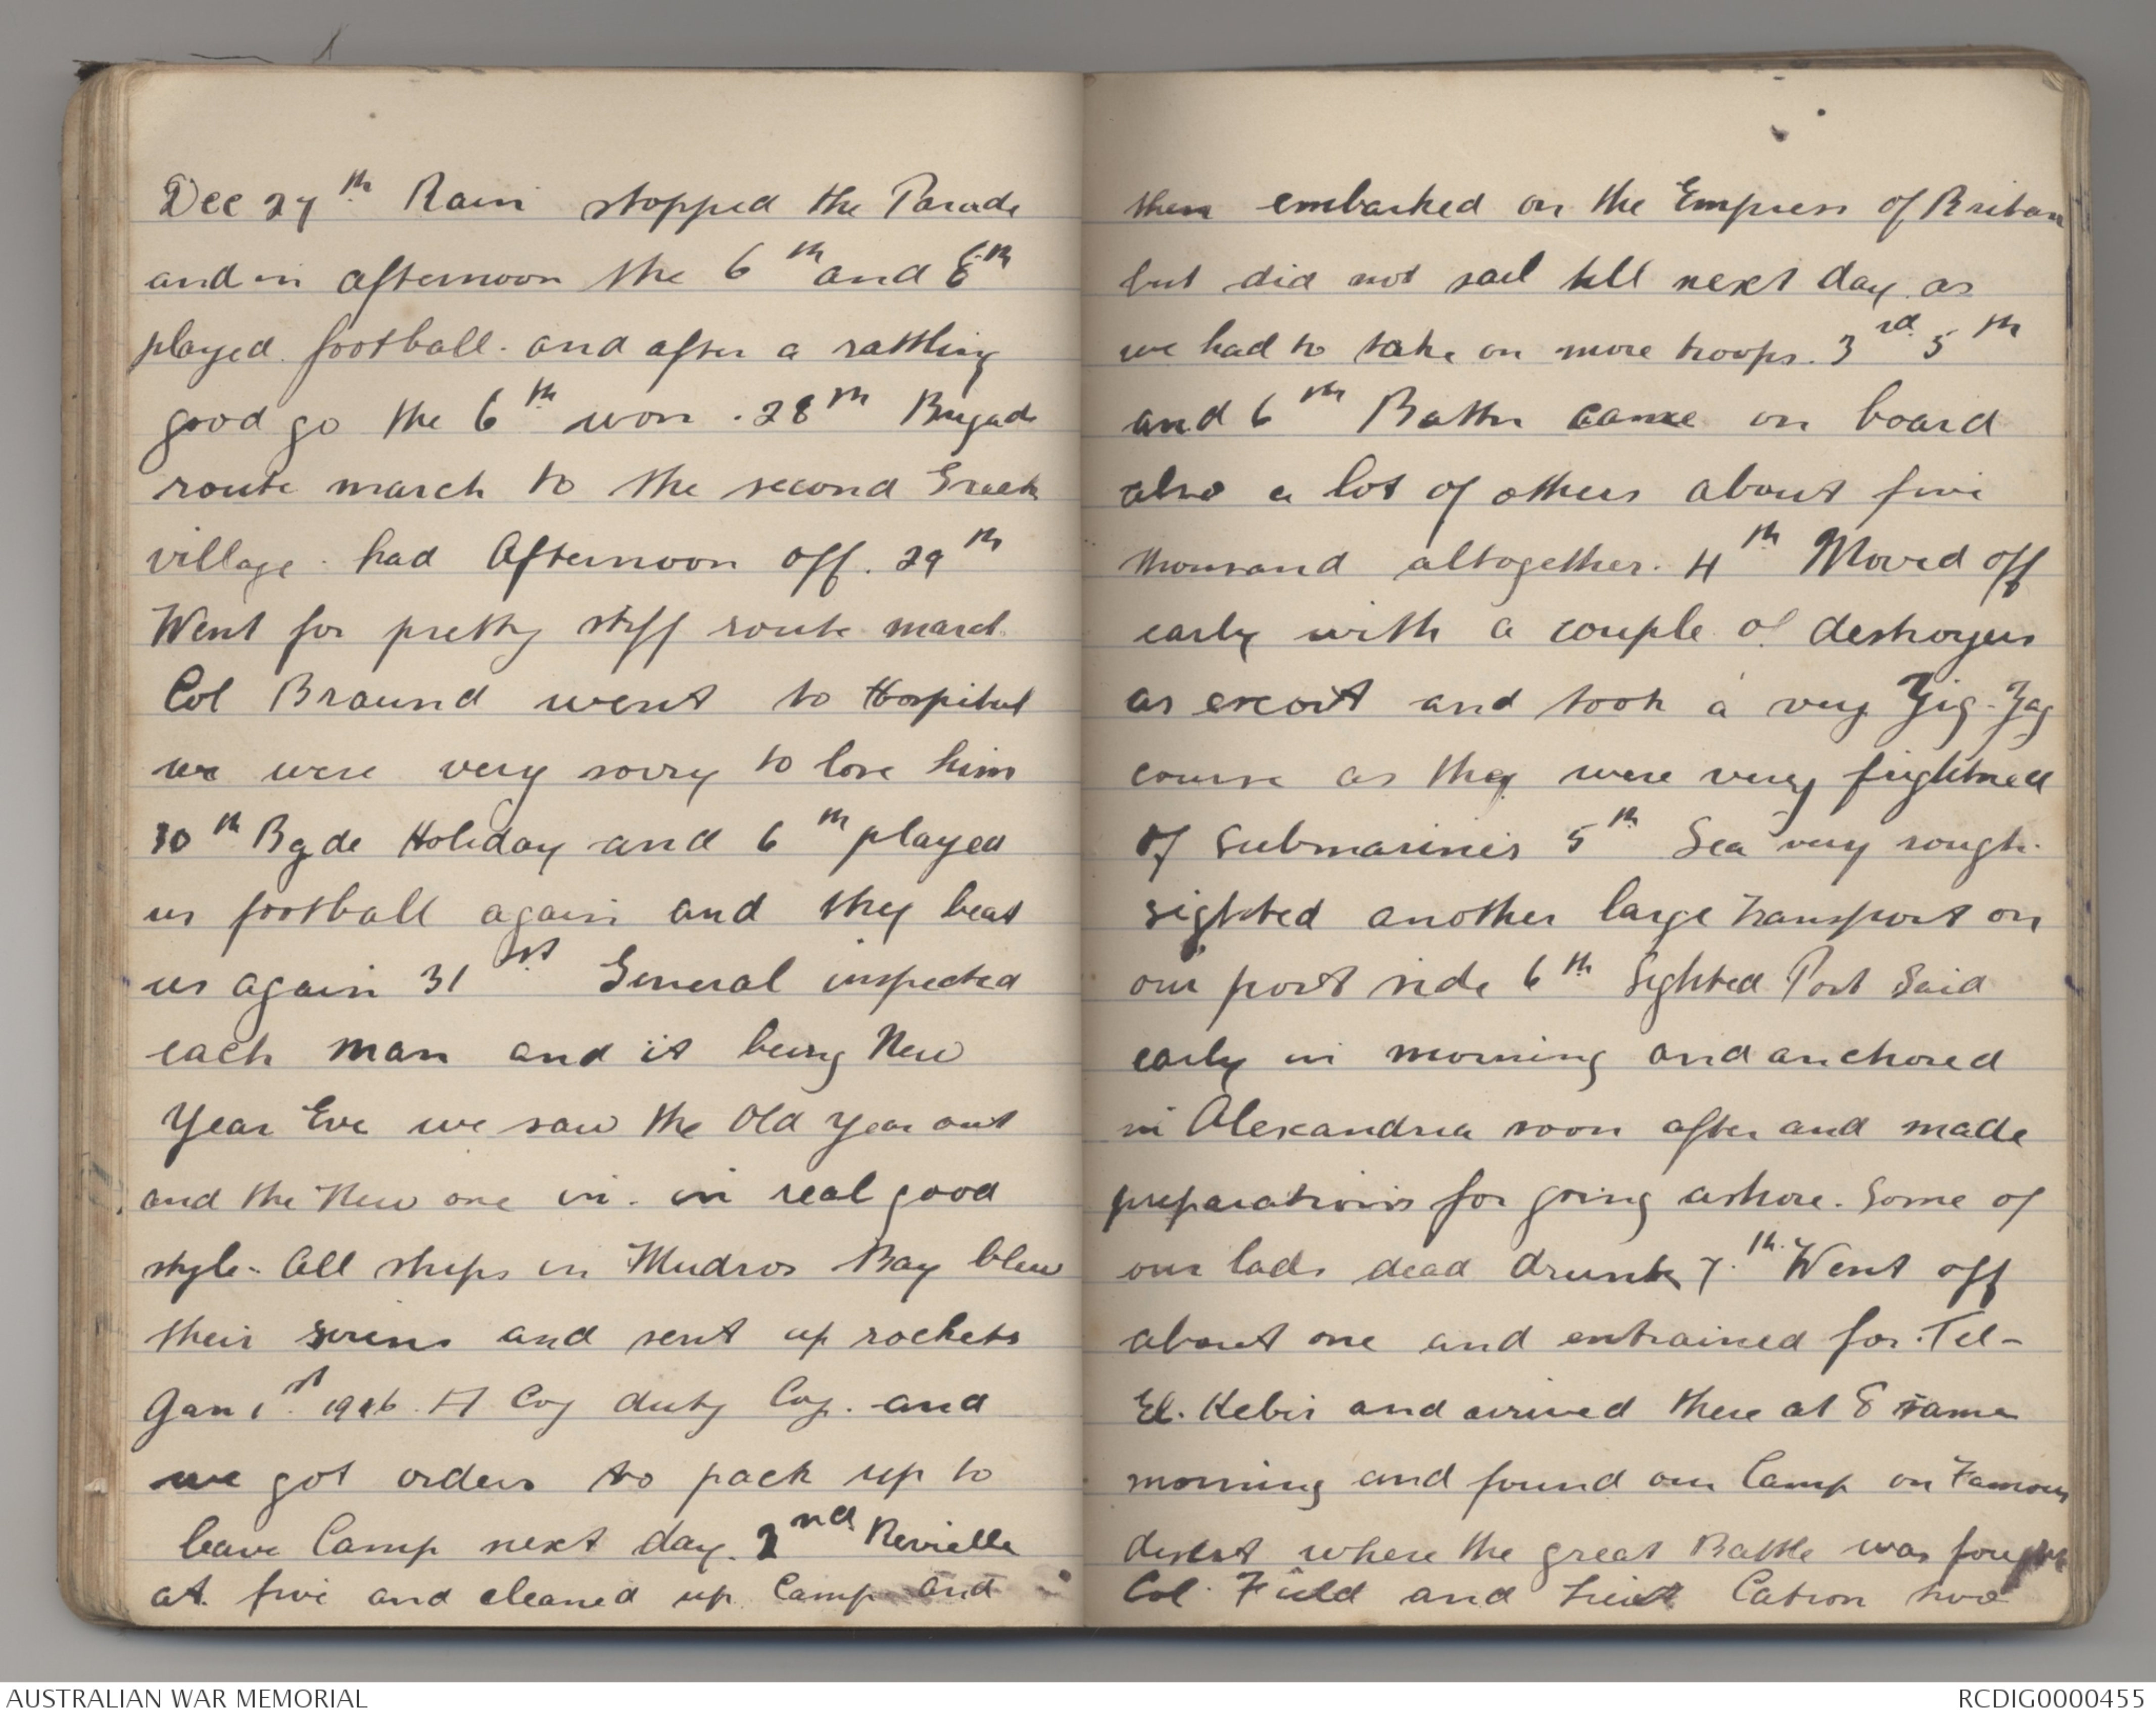 Dec 27th Rain stopped the Parade
and in afternoon the 6th and 8th
played football. and after a rattling
good go the 6th won. 28th Brigade
route march to the second Greek
village. had Afternoon off. 29th
Went for pretty stiff route march
Col Braund went to Hospital
we were very sorry to lose him
30th Bgde Holiday and 6th played
us football again and they beat
us again 31st General inspected
each man and it being New
Year Eve we saw the Old year out
and the New one in. in real good
style- All ships in Mudros Bay blew
their sirens and sent up rockets
Jan 1st. 1916. H Coy duty Coy. and
we got orders to pack up to
leave Camp next day. 2nd Revielle
at five and cleaned up Camp and
then embarked on the Empress of Britain
but did not sail till next day as
we had to take on more troops. 3rd 5th
and 6th Battn came on board
also a lot of others about five
thousand altogether. 4th Moved off
early with a couple of destroyers
as escort and took a very Zig-Zag
course as they were very frightned
of submarines 5th Sea very rough.
sighted another large transport on
our port side 6th Sighted Port Said
early in morning and anchored
in Alexandria soon after and made
preparations for going ashore. Some of
our lads dead drunk 7.th Went off
about one and entrained for Tel-
El. Kebir and arrived there at 8 same
morning and found our Camp on Famous
desert where the great Battle was fought
Col. Field and Lieut Catron two